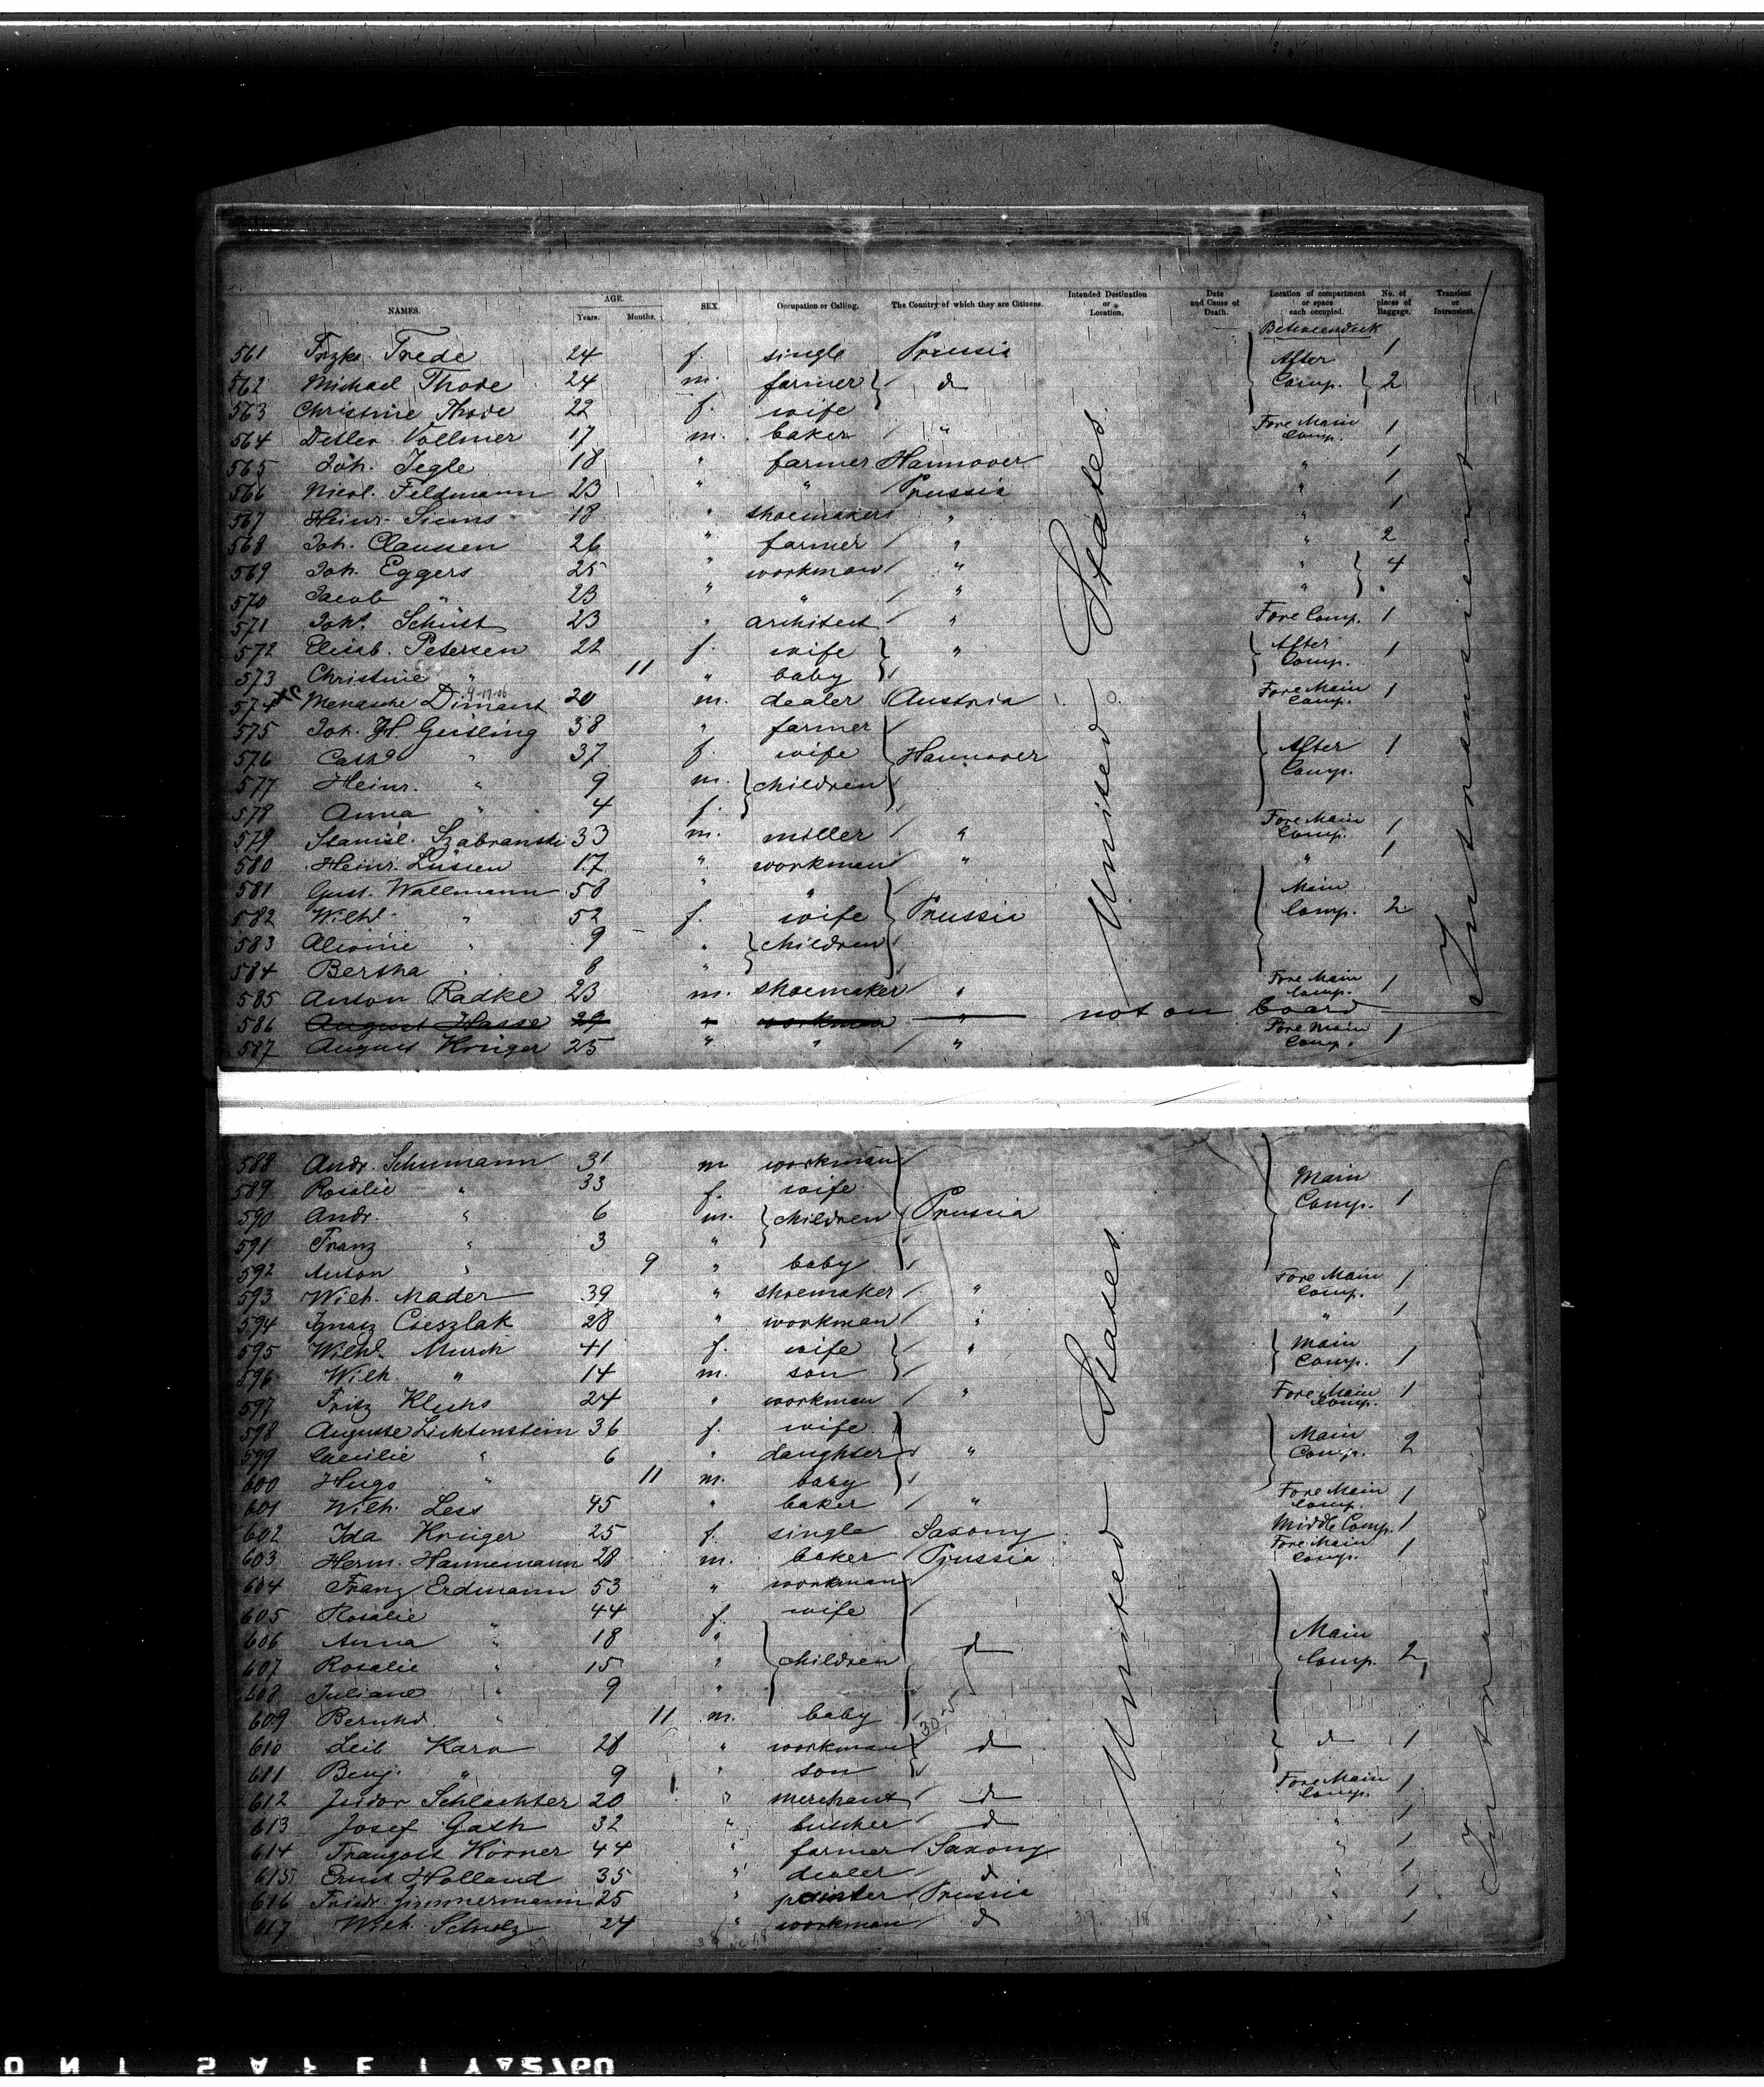 NAMES. AGE. Years. Months. SEX. Occupation or Calling. The Country of which they are Citizens. Intended Destination or Location. Date and Cause of Death. Location of compartment or space each occupied. No. of pieces of Baggage. Transient or Intransient.
Betweendeck
561 Frzka. Trede 24 f. single Prussia After 1
562 Michael Thode 24 m. farmer d Comp. 2
563 Christine Thode 22 f. wife
564 Detlev Vollmer 17 m. baker " Fore Main Comp. 1
565 Joh. Tegle 18 " farmer Hannover " 1
566 Nicol. Feldmann 23 " " Prussia " 1
567 Heinr. Siems 18 " shoemaker " " 1
568 Joh. Claussen 26 " farmer " " 2
569 Joh. Eggers 25 " workman " " 4
570 Jacob " 23 " " " "
571 Joh. Schüst 23 " architect " Fore Comp. 1
572 Elisab. Petersen 22 f. wife " After Comp. 1
573 Christine " 11 " baby
574 Menasche Dimant 4-17-06 20 m. dealer Austria Fore Main Comp. 1
575 Joh. H. Geisling 38 " farmer
576 Cath. " 37 f. wife Hannover After Comp. 1
577 Heinr. " 9 m. children
578 Anna " 4 f.
579 Stanisl. Szabranski 33 m. miller " Fore Main Comp. 1
580 Heinr. Lüsien 17 " workman " " 1
581 Gust. Wallmann 58 " " Main
582 Wilhl. " 52 f. wife Prussia Comp. 2
583 Alwine " 9 " children
584 Bertha " 8 "
585 Anton Radke 23 m. shoemaker " Fore Main Comp. 1
586 August Hasse 29 " workman " not on board
587 August Krüger 25 " " " Fore Main Comp. 1
United States
Intransient
588 Andr. Schumann 31 m workman
589 Rosalie " 33 f. wife Main
590 Andr. " 6 m. children Prussia Comp. 1
591 Franz " 3 "
592 Anton " 9 " baby
593 Wilh. Mader 39 " shoemaker " Fore Main Comp. 1
594 Ignatz Cieszlak 28 " workman " " 1
595 Wilhl. Murch 41 f. wife " Main Comp. 1
596 Wilh. " 14 m. son
597 Fritz Kluhs 24 " workman " Fore Main Comp. 1
598 Auguste Lichtenstein 36 f. wife Main
599 Caecilie " 6 " daughter " Comp. 2
600 Hugo " 11 m. baby
601 Wilh. Less 45 " baker " Fore Main Comp. 1
602 Ida Krüger 25 f. single Saxony Middle Comp. 1
603 Herm. Hannemann 28 m. baker Prussia Fore Main Comp. 1
604 Franz Erdmann 53 " workman
605 Rosalie 44 f. wife
606 Anna " 18 " Main
607 Rosalie " 15 " children d Comp. 2
608 Juliane " 9 "
609 Bernhd. " 11 m. baby
610 Leib Karo 28 " workman d d 1
611 Benj. " 9 " son
612 Isidor Schlachter 20 " merchant d Fore Main Comp. 1
613 Josef Gath 32 " butcher d " 1
614 Traugott Körner 44 " farmer Saxony " 1
615 Ernst Holland 35 " dealer d " 1
616 Friedr. Zimmermann 25 " painter Prussia " 1
617 Wilh. Schulz 24 " workman d " 1
United States
Intransient